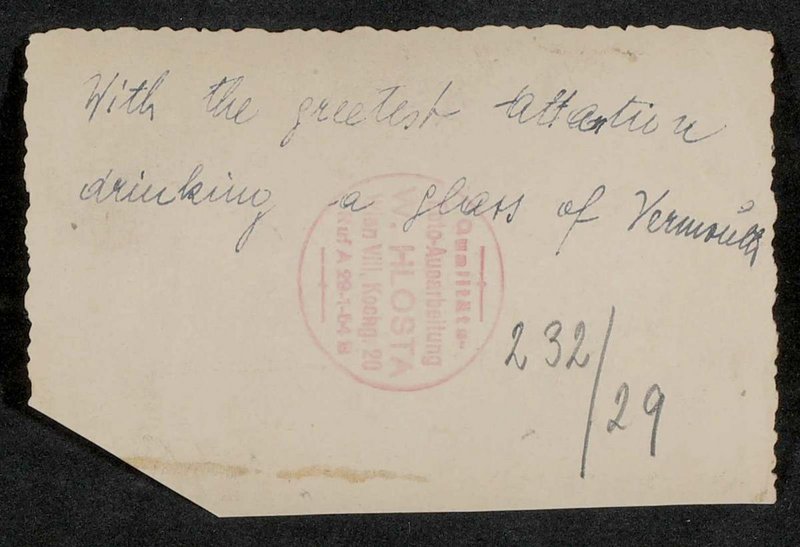 With the greetest attantion
drinking a glass of Vermouth
Qualitäts-
Foto-Ausarbeitung
W. HLOSTA
Wien VIII, Kochg. 20
Ruf A 29-1-04 B
232/29